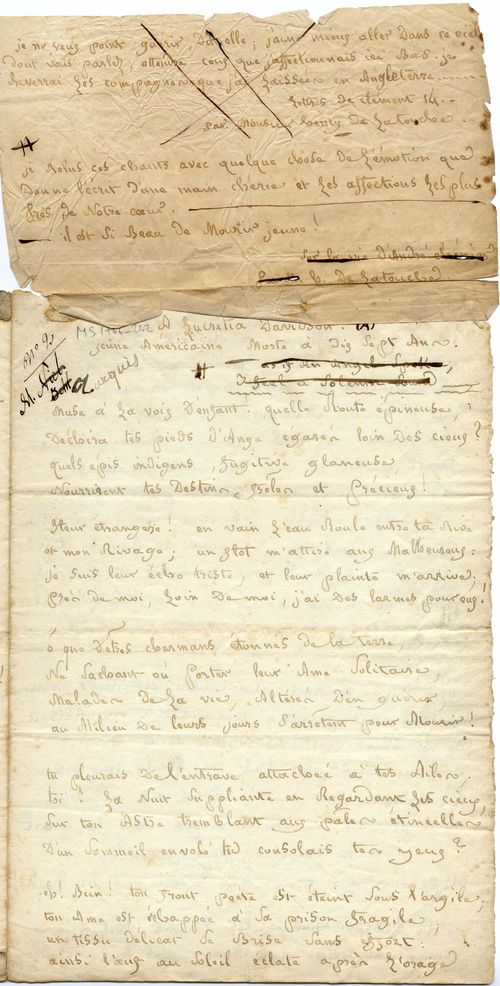 je ne veux point guérir, dit-elle; j'aime mieux aller dans ce ciel
dont vous parlez, attendre ceux que j'affectionnais ici bas. je
reverrai les compagnes que j'ai laissées en Angleterre
lettres de clément 14.
par Monsieur henry de Latouche.
#
je relus ces chants avec quelque chose de l'émotion que
donne l'écrit d'une main chérie et les affections les plus
près de Notre cœur.
il est si Beau de Mourir jeune!
sur la vie d'André
h. De Latouche
MS 1766-242
A Lucretia Davidson. (A)
jeune Américaine Morte à Dix Sept Ans.
No 9.
acquis
#
as if an Angel
Muse à La voix D'enfant! quelle Route épineuse,
Déchira tes pieds D'Ange égarés loin Des cieux?
quels épis indigens, fugitive glaneuse,
Nourrirent tes Destins, frêles et Précieux!
fleur étrangère! en vain l'eau Roule entre ta Rive
et mon Rivage; un flot m'attire aux Malheureux:
je suis leur écho triste, et leur plainte m'arrive;
Près de moi, Loin De moi, j'ai Des larmes pour eux!
ô que D'êtres charmans étonnés de la terre,
Ne Sachant où porter leur Ame Solitaire,
Malades De La vie, Altérés D'en guérir,
au Milieu De leurs jours S'arrêtent pour Mourir!
tu pleurais De l'entrave attachée à tes Ailes,
toi! La Nuit Suppliante en Regardant Les cieux,
Sur ton Astre tremblant aux pâles étincelles
D'un Sommeil envolé tu consolais tes yeux?
eh! Bien! ton front poète est éteint Sous l'argile,
ton Ame est échappée à Sa prison fragile;
un tissu délicat Se Brise Sans effort:
ainsi l'œuf au Soleil éclate après L'orage